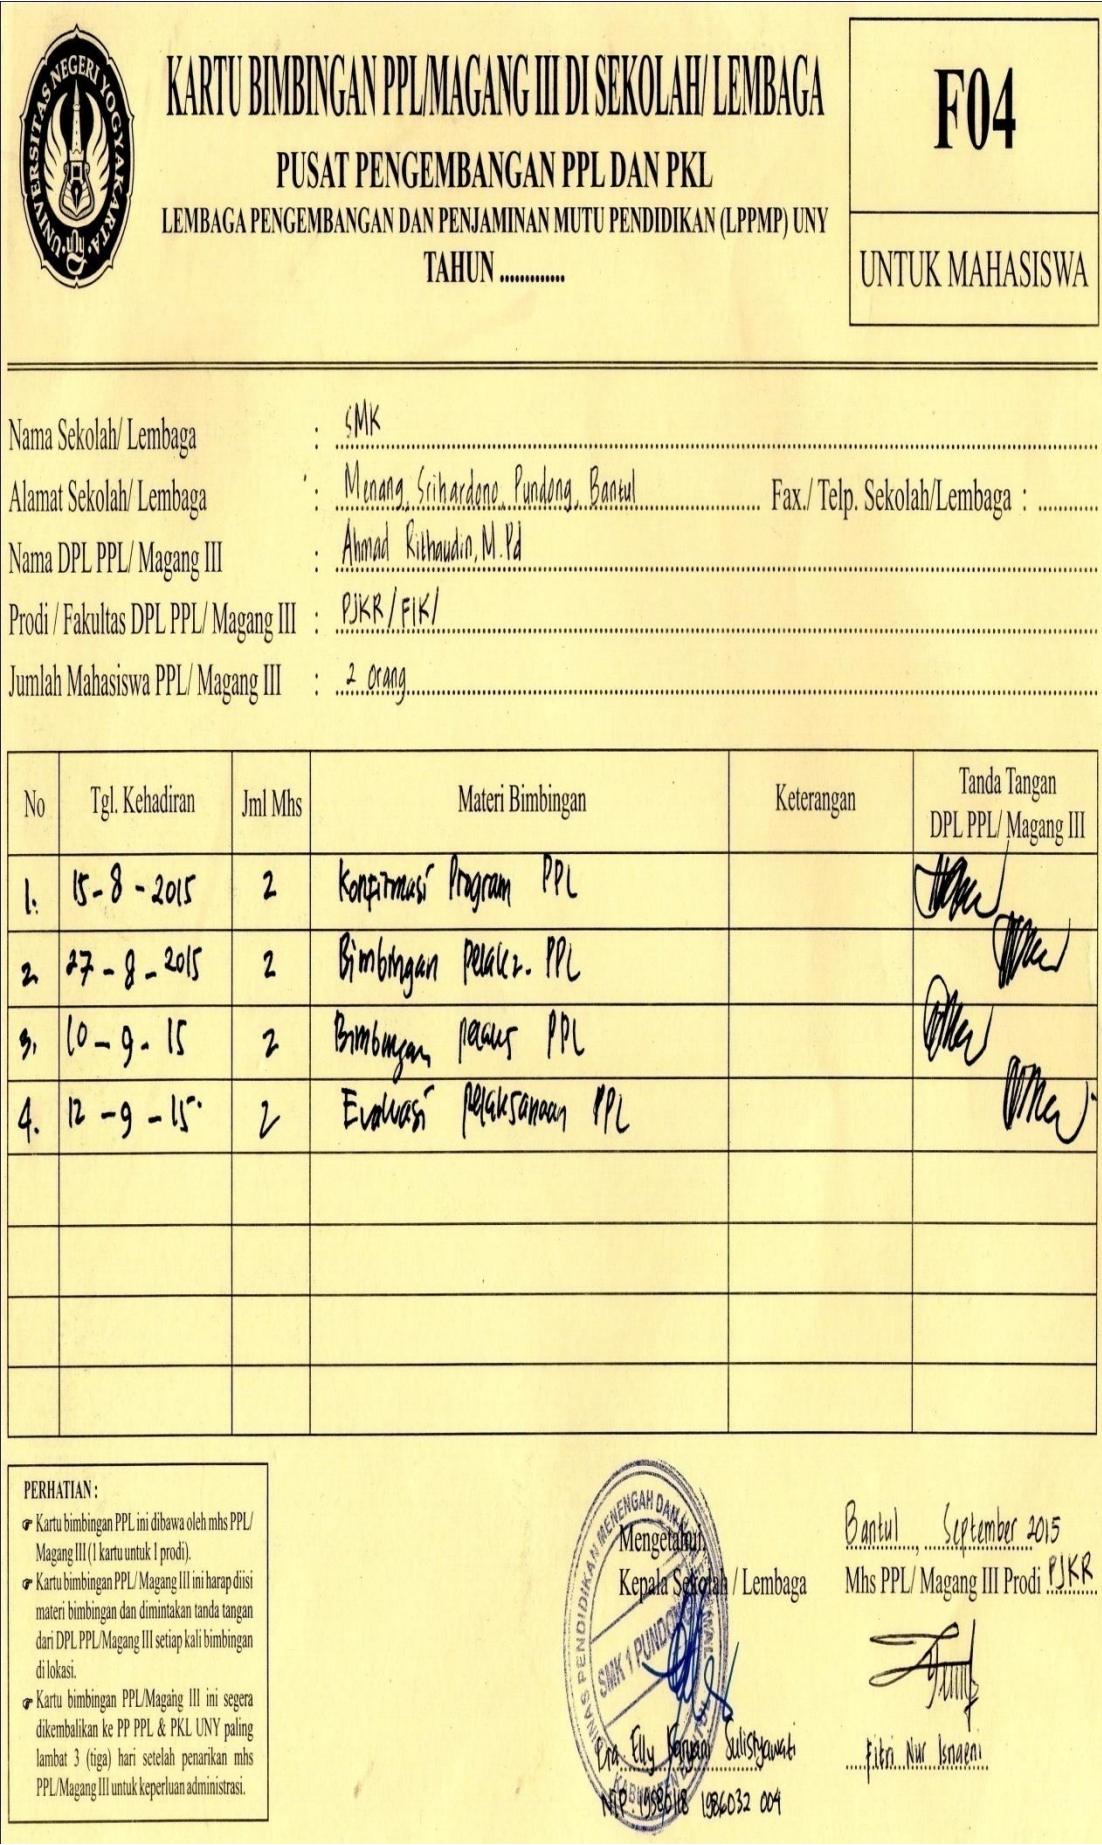 UNIVERSITAS NEGERI YOGYAKARTA
KARTU BIMBINGAN PPL/MAGANG III DI SEKOLAH/ LEMBAGA
PUSAT PENGEMBANGAN PPL DAN PKL
LEMBAGA PENGEMBANGAN DAN PENJAMINAN MUTU PENDIDIKAN (LPPMP) UNY
TAHUN .............
F04
UNTUK MAHASISWA
Nama Sekolah/ Lembaga : SMK
Alamat Sekolah/ Lembaga : Menang, Srihardono, Pundong, Bantul Fax./ Telp. Sekolah/Lembaga : ............
Nama DPL PPL/ Magang III : Ahmad Rithaudin, M.Pd
Prodi / Fakultas DPL PPL/ Magang III : PJKR/FIK/
Jumlah Mahasiswa PPL/ Magang III : 2 orang
No Tgl. Kehadiran Jml Mhs Materi Bimbingan Keterangan Tanda Tangan DPL PPL/ Magang III
1. 15-8-2015 2 Konfirmasi Program PPL
2. 27-8-2015 2 Bimbingan pelaks. PPL
3. 10-9-15 2 Bimbingan pelaks PPL
4. 12-9-15 2 Evaluasi pelaksanaan PPL
PERHATIAN :
Kartu bimbingan PPL ini dibawa oleh mhs PPL/
Magang III (1 kartu untuk 1 prodi).
Kartu bimbingan PPL/ Magang III ini harap diisi
materi bimbingan dan dimintakan tanda tangan
dari DPL PPL/Magang III setiap kali bimbingan
di lokasi.
Kartu bimbingan PPL/Magang III ini segera
dikembalikan ke PP PPL & PKL UNY paling
lambat 3 (tiga) hari setelah penarikan mhs
PPL/Magang III untuk keperluan administrasi.
Mengetahui,
Kepala Sekolah / Lembaga
DINAS PENDIDIKAN MENENGAH DAN
SMK 1 PUNDONG
KABUPATEN BANTUL
Dra Elly Karyani Sulistyawati
NIP. 19580118 1986032 004
Bantul, September 2015
Mhs PPL/ Magang III Prodi PJKR
Fitri Nur Isnaeni